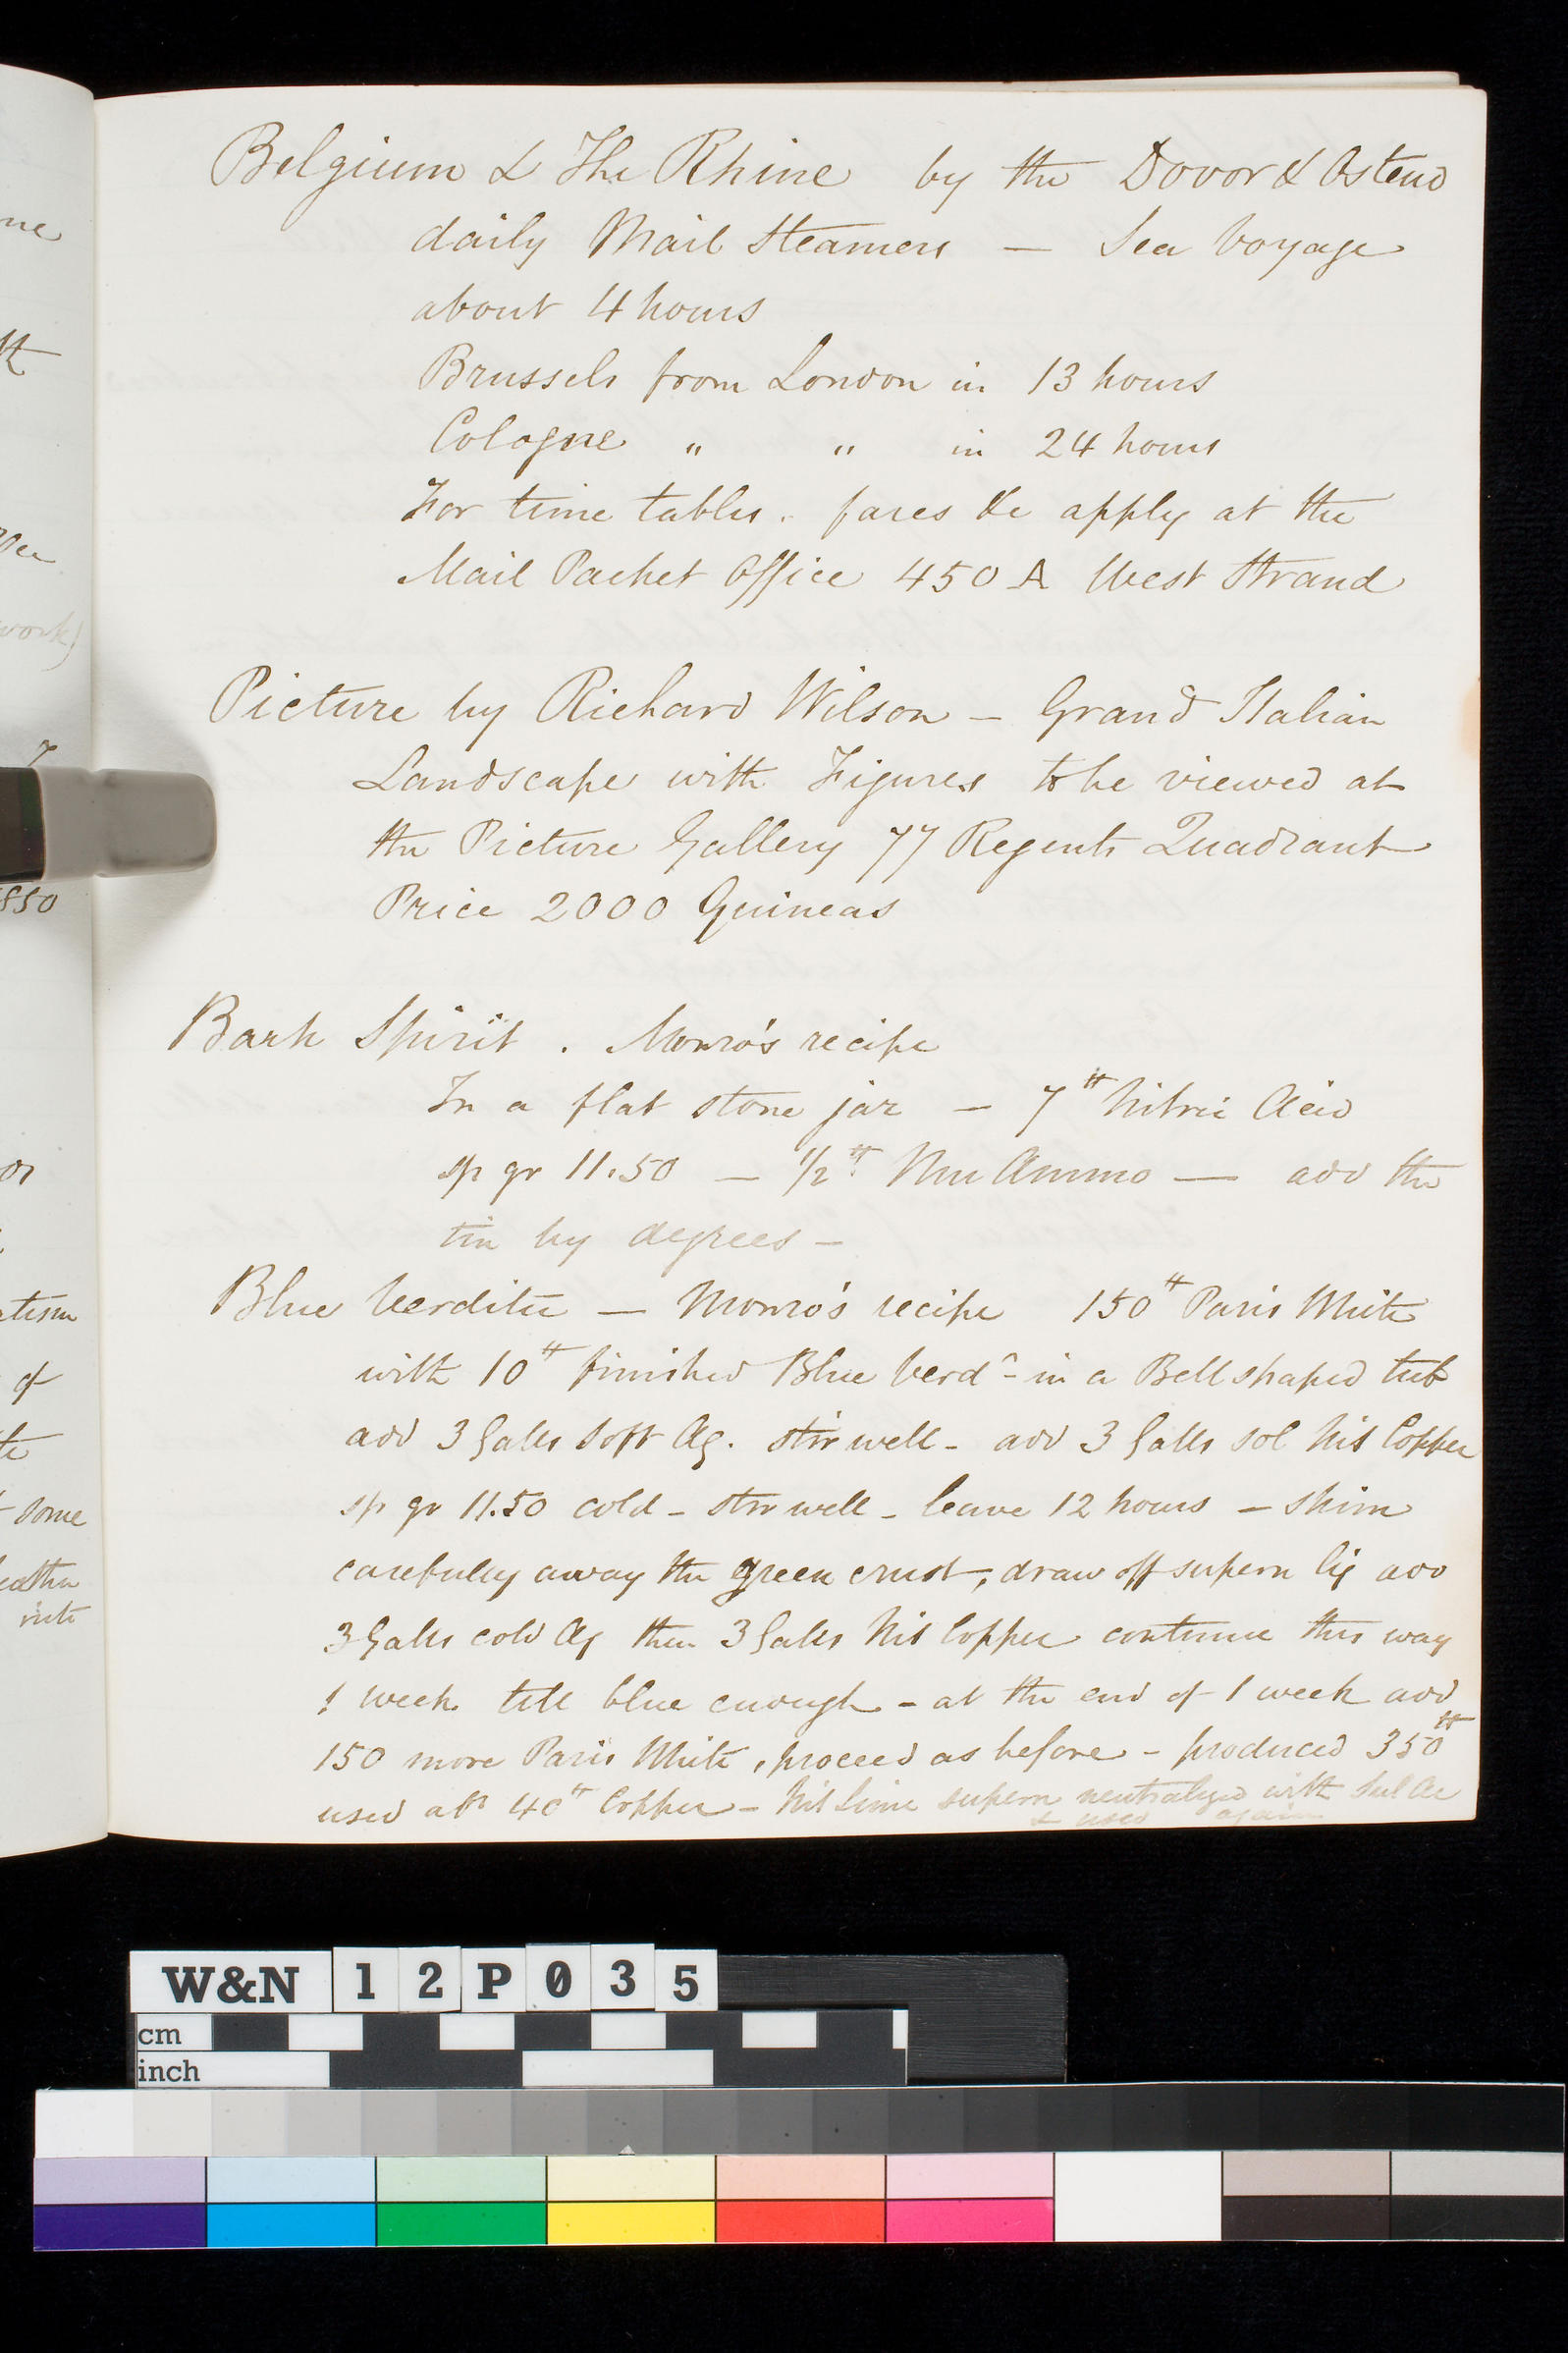 Belgium & The Rhine by the Dovor & Ostend
daily Mail Steamers — Sea Voyage
about 4 hours
Brussels from London in 13 hours
Cologne " " in 24 hours
For time tables. fares &c apply at the
Mail Packet Office 450 A West Strand
Picture by Richard Wilson — Grand Italian
Landscape with Figures to be viewed at
the Picture Gallery 77 Regents Quadrant
Price 2000 Guineas
Bark Spirit . Monro's recipe
In a flat stone jar — 7 lb Nitric Acid
sp gr 11.50 — 1/2 lb Mu Ammo — add the
tin by degrees —
Blue Verditer — Monro's recipe 150 lb Paris White
with 10 lb finished Blue Verdr - in a Bell shaped tub
add 3 Galls soft Aq. stir well - add 3 Galls sol Nit Copper
sp gr 11.50 cold - stir well - leave 12 hours - skim
carefully away the green crust, draw off supern liq add
3 Galls cold Aq then 3 Galls Nit Copper continue this way
1 week till blue enough - at the end of 1 week add
150 more Paris White, proceed as before - produced 350 lb
used abt 40 lb Copper - Nit Lime supern neutralized with Sul Ac
& used again
ne
work)
1850
or
of
some
W&N 12P035
cm
inch